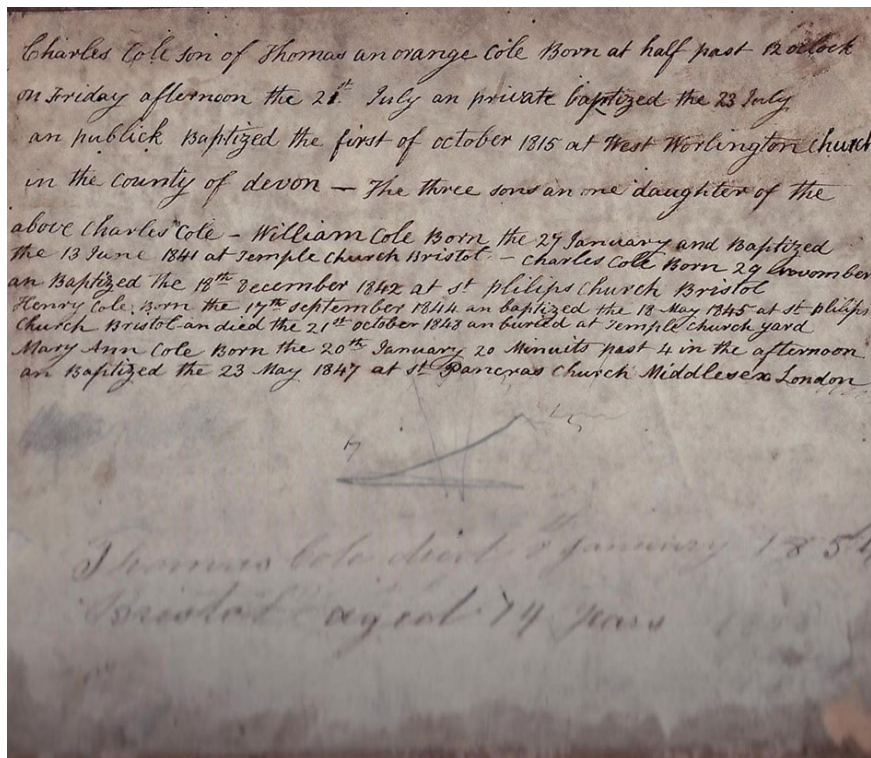 Charles Cole son of Thomas an orange Cole Born at half past 12 oclock
on Friday afternoon the 21st July an private baptized the 23 July
an publick Baptized the first of october 1815 at West Worlington church
in the county of devon — The three sons an one daughter of the
above Charles Cole – William Cole Born the 27 January and Baptized
the 13 June 1841 at Temple church Bristol – Charles Cole Born 29 Novomber
an Baptized the 18th December 1842 at st philips church Bristol
Henry Cole Born the 17th september 1844 an baptized the 18 May 1845 at st philips
church Bristol an died the 21st october 1848 an buried at Temple church yard
Mary Ann Cole Born the 20th January 20 Minuits past 4 in the afternoon
an Baptized the 23 May 1847 at st Pancras church Middlesex London
7
Thomas Cole died January 185
Bristol aged 74 years